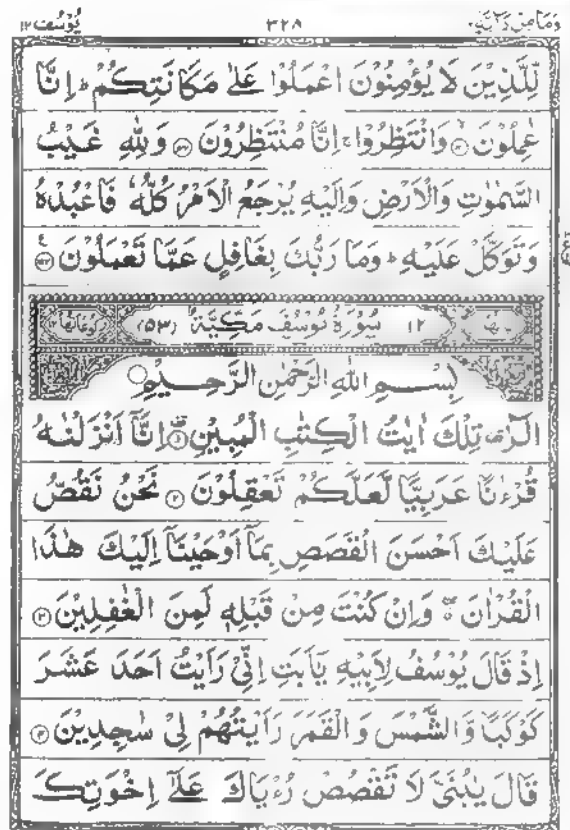 وَمَا مِنْ دَآبَّةٍ ١٢ ٣٢٨ يُوْسُف ١٢
لِّلَّذِيْنَ لَا يُؤْمِنُوْنَ اعْمَلُوْا عَلٰى مَكَانَتِكُمْ ؕ اِنَّا
عٰمِلُوْنَ ۙ۝۱۲۱ وَانْتَظِرُوْا ۚ اِنَّا مُنْتَظِرُوْنَ ۝۱۲۲ وَلِلّٰهِ غَيْبُ
السَّمٰوٰتِ وَالْاَرْضِ وَاِلَيْهِ يُرْجَعُ الْاَمْرُ كُلُّهٗ فَاعْبُدْهُ
وَتَوَكَّلْ عَلَيْهِ ؕ وَمَا رَبُّكَ بِغَافِلٍ عَمَّا تَعْمَلُوْنَ ۝۱۲۳
١٢ سُوْرَةُ يُوْسُفَ مَكِّيَّةٌ (٥٣)
بِسْمِ اللّٰهِ الرَّحْمٰنِ الرَّحِيْمِ
الٓرٰ ۫ تِلْكَ اٰيٰتُ الْكِتٰبِ الْمُبِيْنِ ۝۱ اِنَّاۤ اَنْزَلْنٰهُ
قُرْءٰنًا عَرَبِيًّا لَّعَلَّكُمْ تَعْقِلُوْنَ ۝۲ نَحْنُ نَقُصُّ
عَلَيْكَ اَحْسَنَ الْقَصَصِ بِمَاۤ اَوْحَيْنَاۤ اِلَيْكَ هٰذَا
الْقُرْاٰنَ ۖ وَاِنْ كُنْتَ مِنْ قَبْلِهٖ لَمِنَ الْغٰفِلِيْنَ ۝۳
اِذْ قَالَ يُوْسُفُ لِاَبِيْهِ يٰۤاَبَتِ اِنِّيْ رَاَيْتُ اَحَدَ عَشَرَ
كَوْكَبًا وَّالشَّمْسَ وَالْقَمَرَ رَاَيْتُهُمْ لِيْ سٰجِدِيْنَ ۝۴
قَالَ يٰبُنَيَّ لَا تَقْصُصْ رُءْيَاكَ عَلٰۤى اِخْوَتِكَ